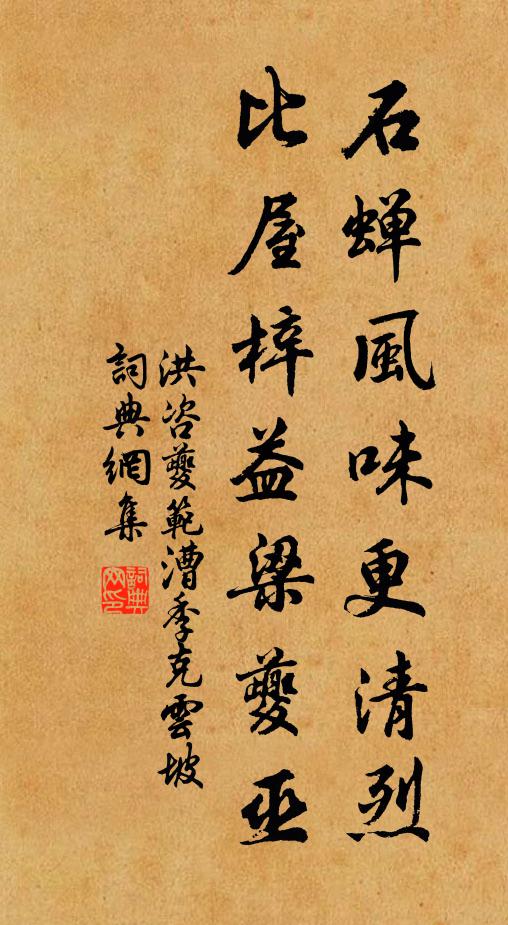 石蟬風味更清烈
比屋梓益梁夔巫
洪咨夔範漕季克雲坡
詞典網集
詞典网印